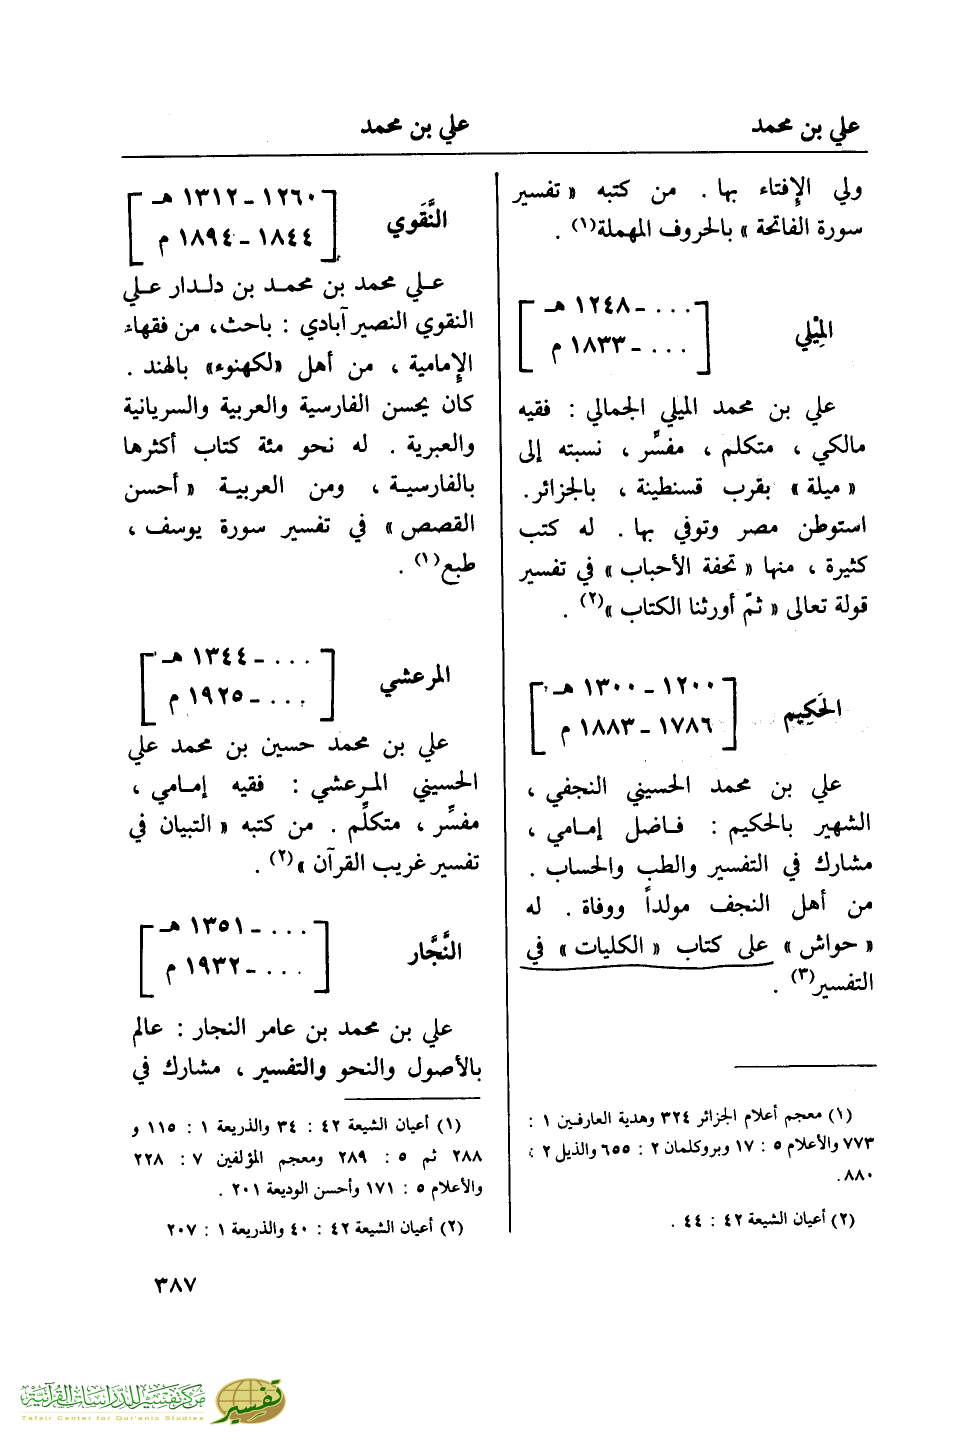 علي بن محمد
علي بن محمد
ولي الإفتاء بها . من كتبه « تفسير
سورة الفاتحة » بالحروف المهملة(١) .
الِميْلي
... - ١٢٤٨ هـ
... - ١٨٣٣ م
علي بن محمد الميلي الجمالي : فقيه
مالكي ، متكلم ، مفسِّر ، نسبته إلى
« ميلة » بقرب قسنطينة ، بالجزائر.
استوطن مصر وتوفي بها . له كتب
كثيرة ، منها « تحفة الأحباب » في تفسير
قولة تعالى « ثمّ أورثنا الكتاب »(٢) .
الحَكِيم
١٢٠٠ - ١٣٠٠ هـ
١٧٨٦ - ١٨٨٣ م
علي بن محمد الحسيني النجفي ،
الشهير بالحكيم : فاضل إمامي ،
مشارك في التفسير والطب والحساب .
من أهل النجف مولداً ووفاة . له
« حواش » على كتاب « الكليات » في
التفسير(٣) .
(١) معجم أعلام الجزائر ٣٢٤ وهدية العارفين ١ :
٧٧٣ والأعلام ٥ : ١٧ وبروكلمان ٢ : ٦٥٥ والذيل ٢ :
٨٨٠.
(٢) أعيان الشيعة ٤٢ : ٤٤ .
النَّقَوي
١٢٦٠ - ١٣١٢ هـ
١٨٤٤ - ١٨٩٤ م
علي محمد بن محمد بن دلدار علي
النقوي النصير آبادي : باحث، من فقهاء
الإمامية ، من أهل «لكهنوء» بالهند .
كان يحسن الفارسية والعربية والسريانية
والعبرية . له نحو مئة كتاب أكثرها
بالفارسية ، ومن العربية « أحسن
القصص » في تفسير سورة يوسف ،
طبع(١) .
المرعشي
... - ١٣٤٤ هـ
... - ١٩٢٥ م
علي بن محمد حسين بن محمد علي
الحسيني المرعشي : فقيه إمامي ،
مفسِّر ، متكلِّم . من كتبه « التبيان في
تفسير غريب القرآن »(٢) .
النَّجَّار
... - ١٣٥١ هـ
... - ١٩٣٢ م
علي بن محمد بن عامر النجار : عالم
بالأصول والنحو والتفسير ، مشارك في
(١) أعيان الشيعة ٤٢ : ٣٤ والذريعة ١ : ١١٥ و
٢٨٨ ثم ٥ : ٢٨٩ ومعجم المؤلفين ٧ : ٢٢٨
والأعلام ٥ : ١٧١ وأحسن الوديعة ٢٠١ .
(٢) أعيان الشيعة ٤٢ : ٤٠ والذريعة ١ : ٢٠٧
٣٨٧
مركز تفسير للدراسات القرآنية
Tafsir Center for Qur'anic Studies
تفسير